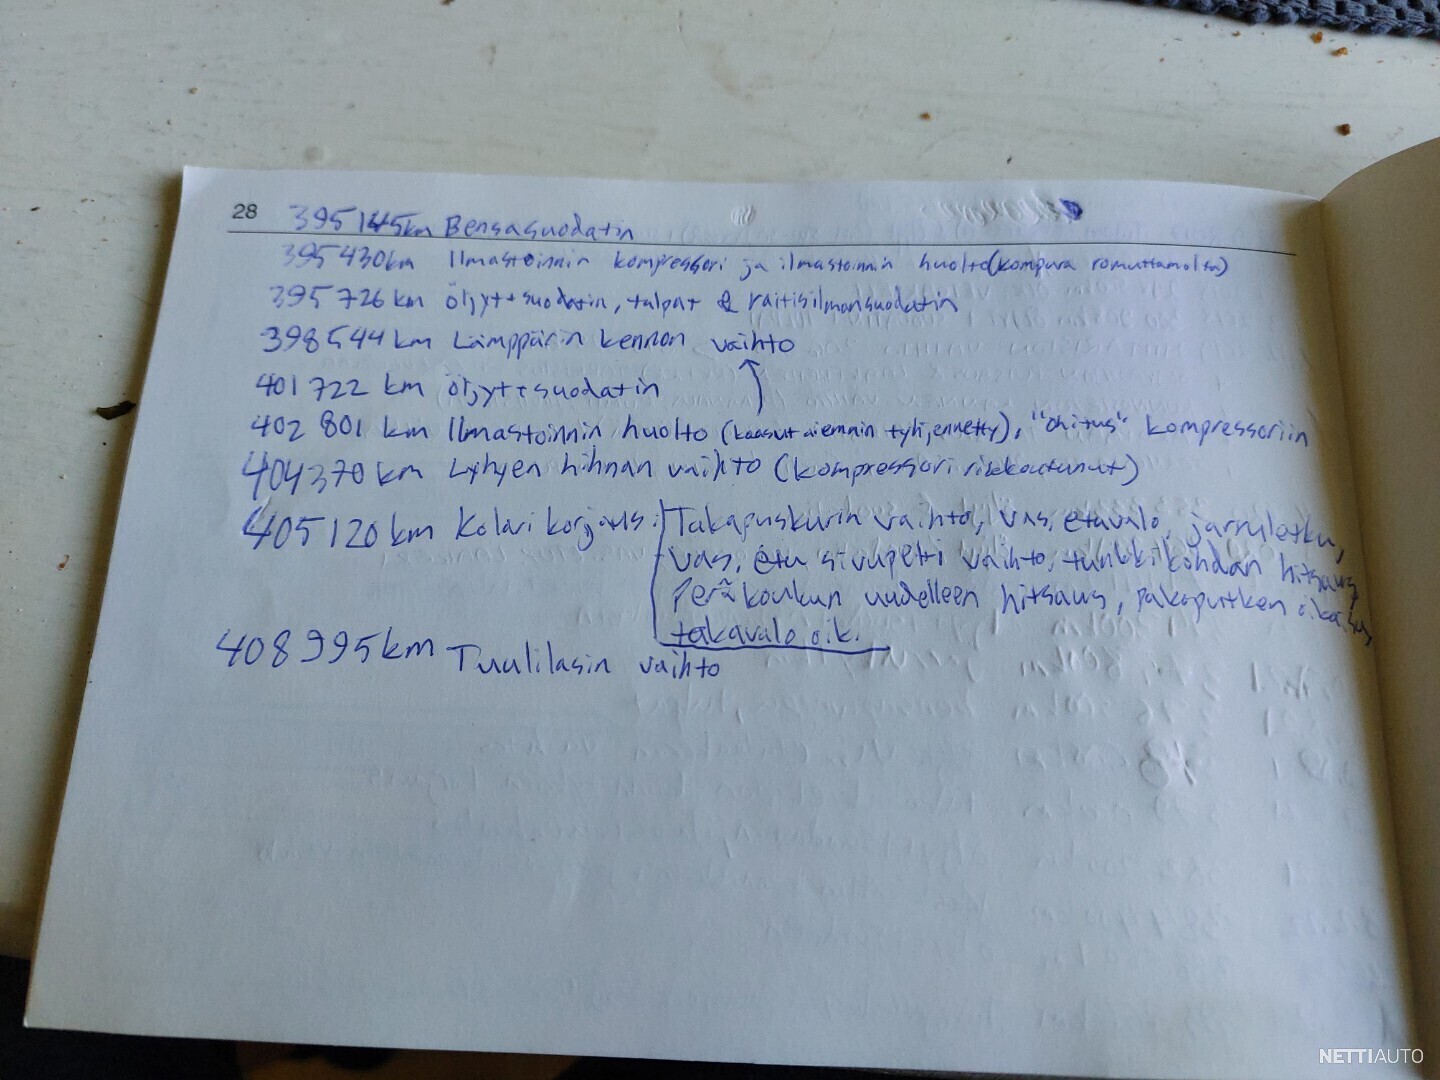 28 395 145km Bensasuodatin
395 430km Ilmastoinnin kompressori ja ilmastoinnin huolto (kompura romuttamolta)
395 726 km öljyt+suodatin, tulpat & raitisilmansuodatin
398 544 km Lämppärin kennon vaihto
401 722 km öljyt+suodatin
402 801 km Ilmastoinnin huolto (kaasut aiemmin tyhjennetty), "ohitus" kompressoriin
404 370 km Lyhyen hihnan vaihto (kompressori rikkoutunut)
405 120 km Kolari korjaus: Takapuskurin vaihto, vas. etuvalo, jarruletku,
vas. etu sivupelti vaihto, tunkkikohdan hitsaus,
Peräkoukun uudelleen hitsaus, pakoputken oikaisu,
takavalo oik.
408 995 km Tuulilasin vaihto
NETTIAUTO